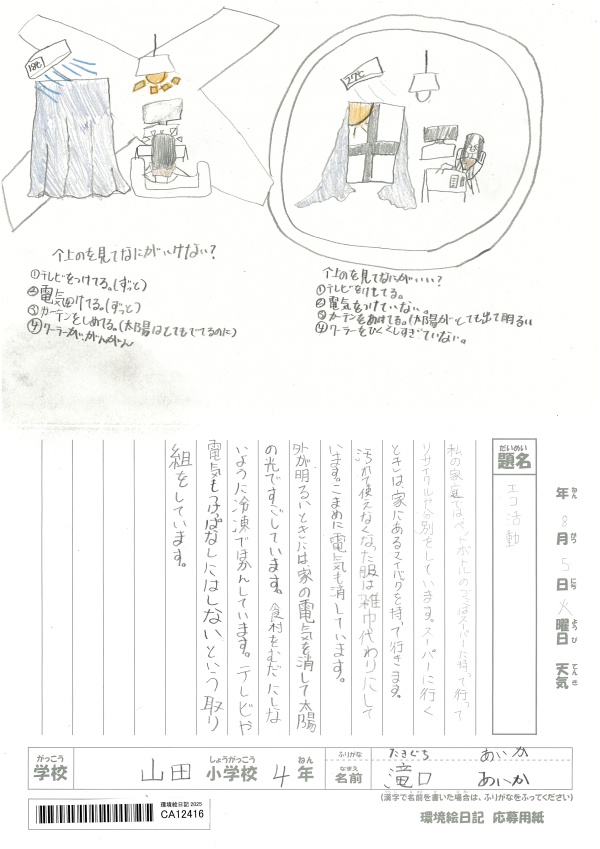 18℃
27℃
↑上のを見てなにがいけない？
①テレビをつけてる。(ずっと)
②電気つけてる。(ずっと)
③カーテンをしめてる。(太陽はとてもでてるのに)
④クーラーが、がんがん
↑上のを見てなにがいい？
①テレビをけしてる。
②電気をつけていない。
③カーテンをあけてる。(太陽がとても出て明るい
④クーラーをひくくしすぎていない。
だいめい
題名
エコ活動
年 8月 5日 火曜日 天気
ねん がつ にち ようび てんき
私の家庭ではペットボトルのごみはスーパーに持って行って
リサイクルや分別をしています。スーパーに行く
ときは、家にあるマイバックを持って行きます。
汚れて使えなくなった服は雑巾代わりにして
います。こまめに電気も消しています。
外が明るいときには、家の電気を消して太陽
の光ですごしています。食材をむだにしな
いように冷凍でほかんしています。テレビや
電気もつけっぱなしにはしないという取り
組をしています。
がっこう しょうがっこう ねん
学校 山田 小学校 4年
ふりがな たきぐち あいか
なまえ
名前 滝口 あいか
(漢字で名前を書いた場合は、ふりがなをふってください)
環境絵日記 2025
CA12416
環境絵日記 応募用紙